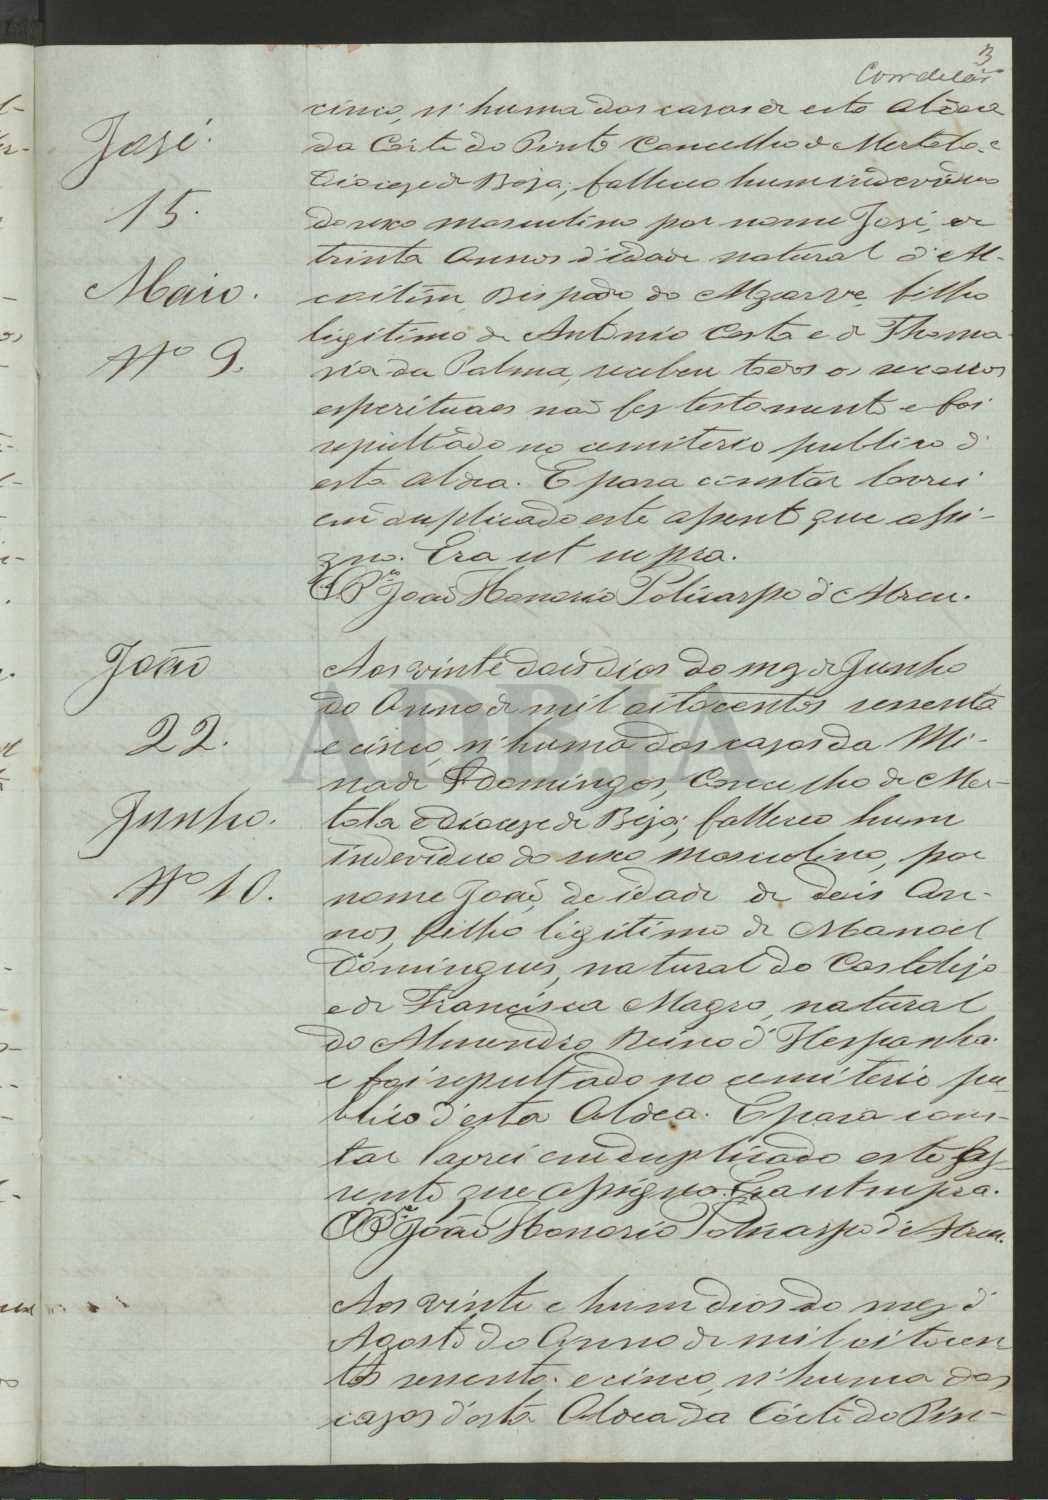 3
José.
15.
Maio.
Nº 9.
cinco, n'huma das casas de esta Aldea
da Côrte do Pinto Concelho de Mertola e
Diocese de Beja; falleceo hum individuo
do sexo masculino por nome José, de
trinta Annos d'idade natural d'Al-
coitim, Bispado do Algarve, filho
legitimo de Antonio Costa e de Thoma-
sia da Palma, recebeu todos os socorros
esperituaes não fez testamento e foi
sepultado no cemiterio publico d'
esta Aldea. E para constar lavrei
em duplicado este assento que assi-
gno. Era ut supra.
O Pe. João Honorio Policarpo d'Abreu.
João
22.
Junho.
Nº 10.
Aos vinte dois dias do mez de Junho
do Anno de mil oitocentos sessenta
e cinco, n'huma das casas da Mi-
na de S. Domingos, Concelho de Mer-
tola e Diocese de Beja; falleceo hum
individuo do sexo masculino, por
nome João, de idade de dois An-
nos, filho legitimo de Manoel
Domingues, natural do Castelejo
e de Francisca Magro, natural
do Almendro Reino d'Hespanha
e foi sepultado no cemiterio pu-
blico d'esta Aldea. E para cons-
tar lavrei em duplicado este as-
sento que assigno. Era ut supra.
O Pe. João Honorio Policarpo d'Abreu.
Aos vinte e hum dias do mez d'
Agosto do Anno de mil oitocen
tos sessenta e cinco, n'huma das
casas d'esta Aldea da Côrte do Pin-
ADBJA